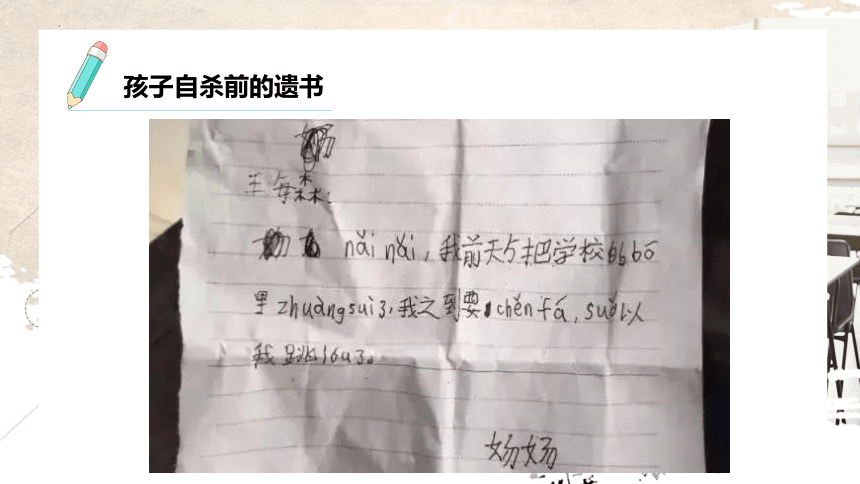 孩子自杀前的遗书
nǎi nǎi, 我前天与把学校的bō
里zhuàngsuì了, 我之到要chěn fá, suǒ以
我跳lóu了。
妫妫